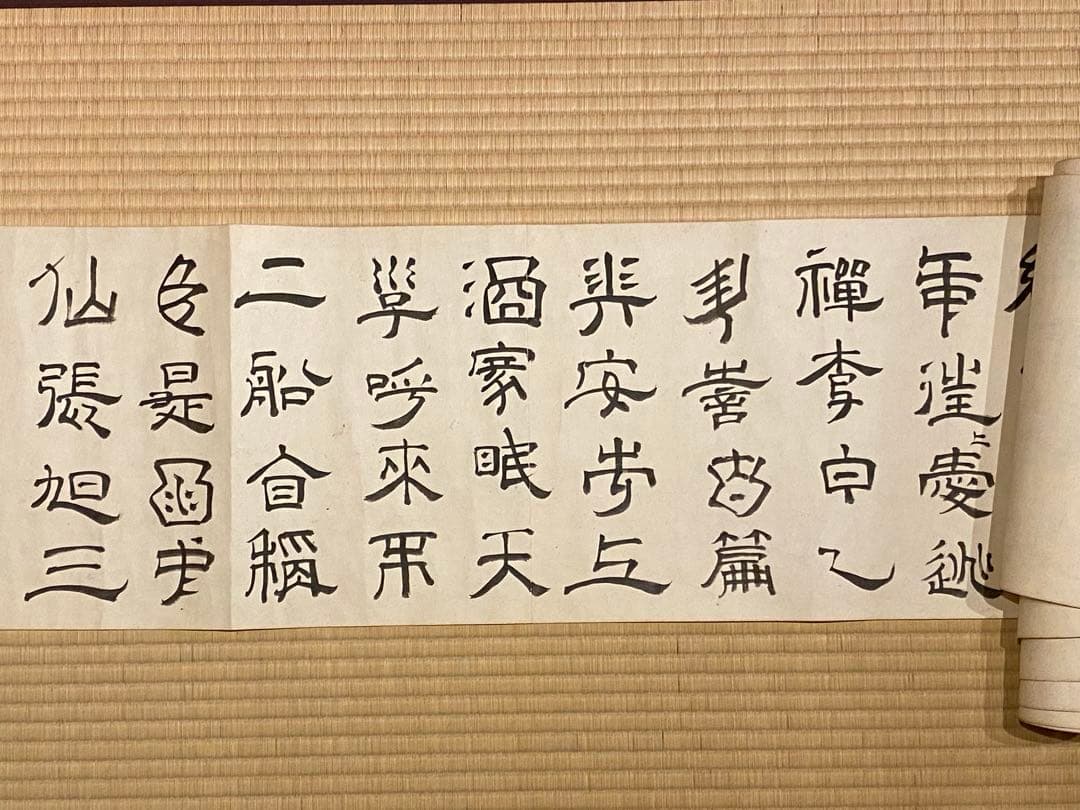 中往〻愛逃
禪李白一
斗詩百篇
長安市上
酒家眠天
子呼來不
上船自稱
臣是酒中
仙張旭三